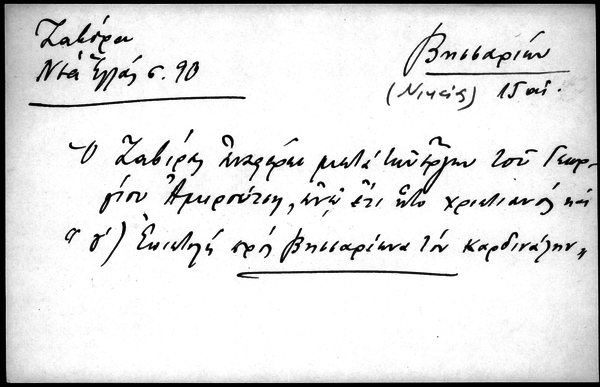 Ζαβίρα
Νέα Ἑλλάς σ. 90
Βησσαρίων
(Νικαίας) 15 αἰ.
Ὁ Ζαβίρας ἀναφέρει μετά τῶν ἔργων τοῦ Γεωρ-
γίου Ἀμιρούτση, ἐνῶ ἔτι ἦτο χριστιανός καί
"γ') Ἐπιστολή πρός Βησσαρίωνα τόν καρδινάλην"